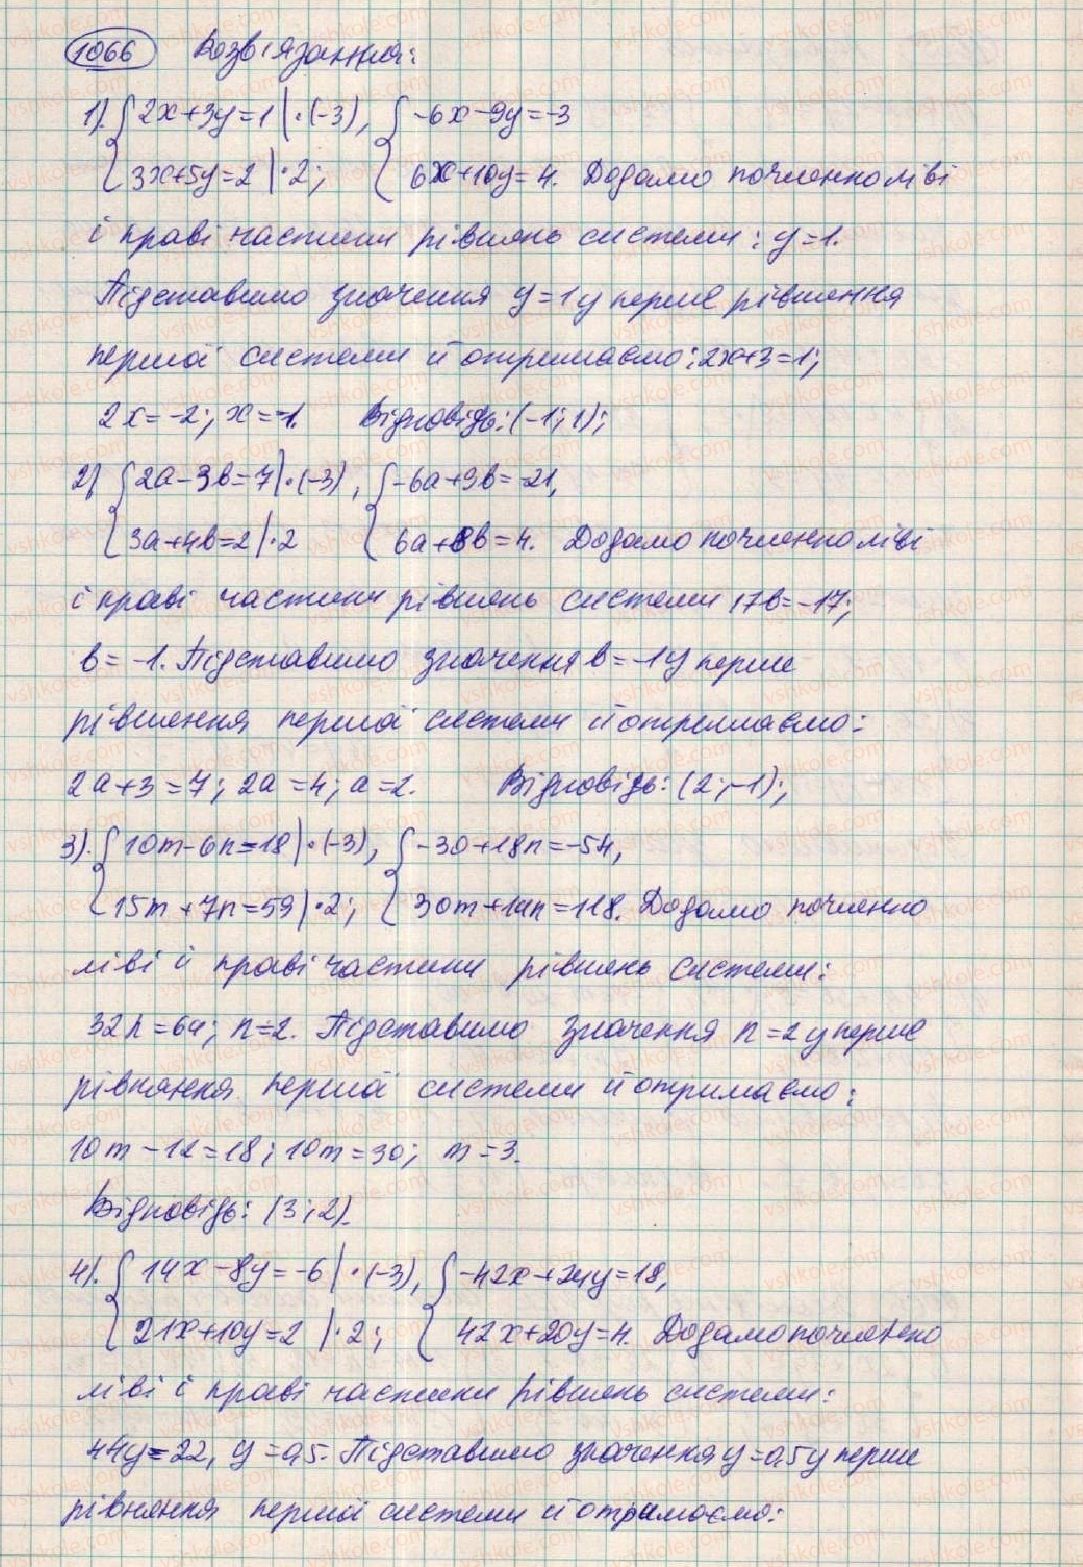 1066 Розв'язання:
1). { 2x+3y=1 | ·(-3), { -6x-9y=-3
3x+5y=2 | ·2; 6x+10y=4. Додамо почленно ліві
і праві частини рівнянь системи: y=1.
Підставимо значення y=1 у перше рівняння
першої системи й отримаємо: 2x+3=1;
2x=-2; x=-1. Відповідь: (-1; 1);
2) { 2a-3b=7 | ·(-3), { -6a+9b=-21,
3a+4b=2 | ·2 6a+8b=4. Додамо почленно ліві
і праві частини рівнянь системи 17b=-17;
b=-1. Підставимо значення b=-1 у перше
рівняння першої системи й отримаємо:
2a+3=7; 2a=4; a=2. Відповідь: (2; -1);
3). { 10m-6n=18 | ·(-3), { -30+18n=-54,
15m+7n=59 | ·2; 30m+14n=118. Додамо почленно
ліві й праві частини рівнянь системи:
32n=64; n=2. Підставимо значення n=2 у перше
рівняння першої системи й отримаємо:
10m-12=18; 10m=30; m=3.
Відповідь: (3; 2).
4). { 14x-8y=-6 | ·(-3), { -42x+24y=18,
21x+10y=2 | ·2; 42x+20y=4. Додамо почленно
ліві і праві частини рівнянь системи:
44y=22, y=0,5. Підставимо значення y=0,5 у перше
рівняння першої системи й отримаємо: